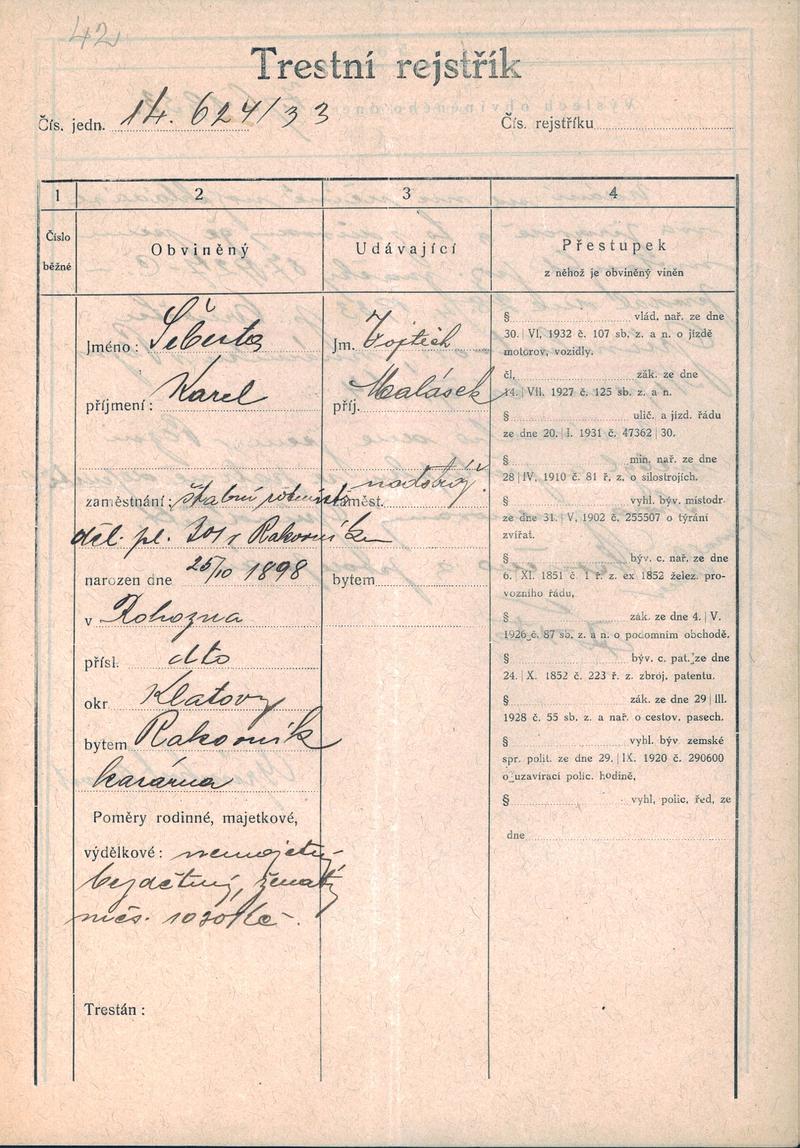 42
Trestní rejstřík
Čís. jedn. 14.624/33
Čís. rejstříku
1 2 3 4
Číslo běžné
Obviněný
Udávající
Přestupek
z něhož je obviněný viněn
Jméno: Šebesta
příjmení: Karel
zaměstnání: štabní rotmistr
děl. pl. 301 v Rakovníku
narozen dne 25/10 1898
v Rohozna
přísl. dto
okr Klatovy
bytem Rakovník
kasárna
Poměry rodinné, majetkové,
výdělkové: nemajetný
bezdětný, ženatý
měs. 1030 Kč-.
Trestán:
Jm. Vojtěch
příj. Malásek
zaměst. nadstráž.
bytem
§ vlád, nař. ze dne
30. | VI, 1932 č. 107 sb. z. a n. o jízdě
motorov, vozidly.
čl, zák. ze dne
14. | VII. 1927 č. 125 sb. z. a n.
§ ulič. a jízd. řádu
ze dne 20. | I. 1931 č. 47362 | 30.
§ min. nař. ze dne
28 | IV, 1910 č. 81 ř. z. o silostrojích.
§ vyhl. býv. místodr.
ze dne 31. | V, 1902 č. 255507 o týrání
zvířat.
§ býv. c. nař. ze dne
6. | XI. 1851 č. 1 ř. z. ex 1852 želez. pro-
vozního řádu,
§ zák. ze dne 4. | V.
1926 č. 87 sb. z. a n. o podomním obchodě.
§ býv. c. pat. ze dne
24. | X. 1852 č. 223 ř. z. zbroj. patentu.
§ zák. ze dne 29 | III.
1928 č. 55 sb. z. a nař. o cestov. pasech.
§ vyhl. býv zemské
spr. polit. ze dne 29. | IX. 1920 č. 290600
o uzavírací polic. hodině,
§ vyhl, polic, řed, ze
dne